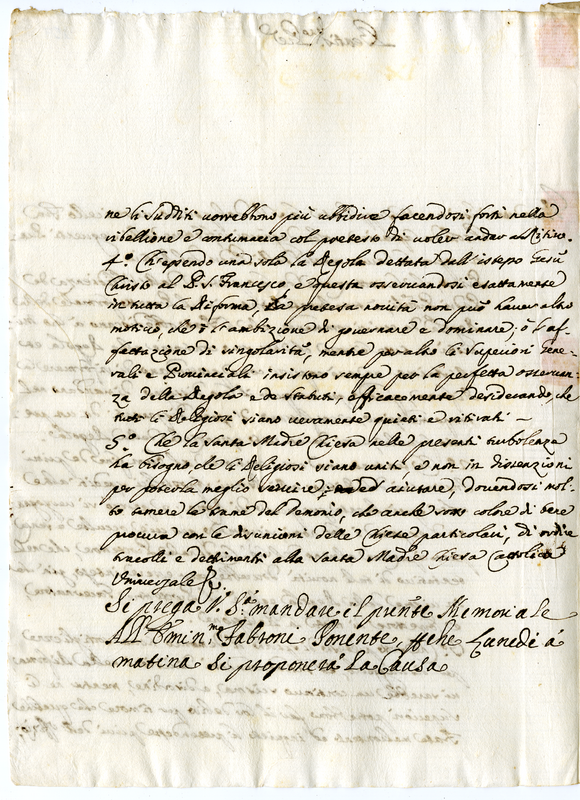 ne li Sudditi vorrebbono più ubbidire facendosi forti nella
ribellione e contumacia col pretesto di voler andar al Ritiro.
4.° Ch'essendo una sola la Regola dettata dall'istesso Giesù
Christo al P. S. Francesco, e questa osservandosi esattamente
in tutta la Riforma, la pretesa novità non può haver altro
motivo, che ò l'ambizione di governare e dominare; ò l'af-
fettazione di singolarità, mentre per altro li Superiori Gene-
rali e Provinciali insistono sempre per la perfetta osservan-
za della Regola e de Statuti, efficacemente desiderando, che
tutti li Religiosi siano veramente quieti e ritirati ~
5.° Che la Santa Madre Chiesa nelle presenti turbolenze
ha bisogno, che li Religiosi siano uniti e non in dissenzioni
per poterla meglio servire, ed aiutare, dovendosi mol-
to temere le trame del Demonio, che anche sotto colore di bene
procura con le disunioni delle Chiese particolari, di ordire
tracolli e detrimenti alla Santa Madre Chiesa Cattolica
Universale
Si prega V. S.à mandare il pnñte Memoriale
All' Emin.mo Fabroni Ponente, che Lunedi à
matina Si proponerà La Causa